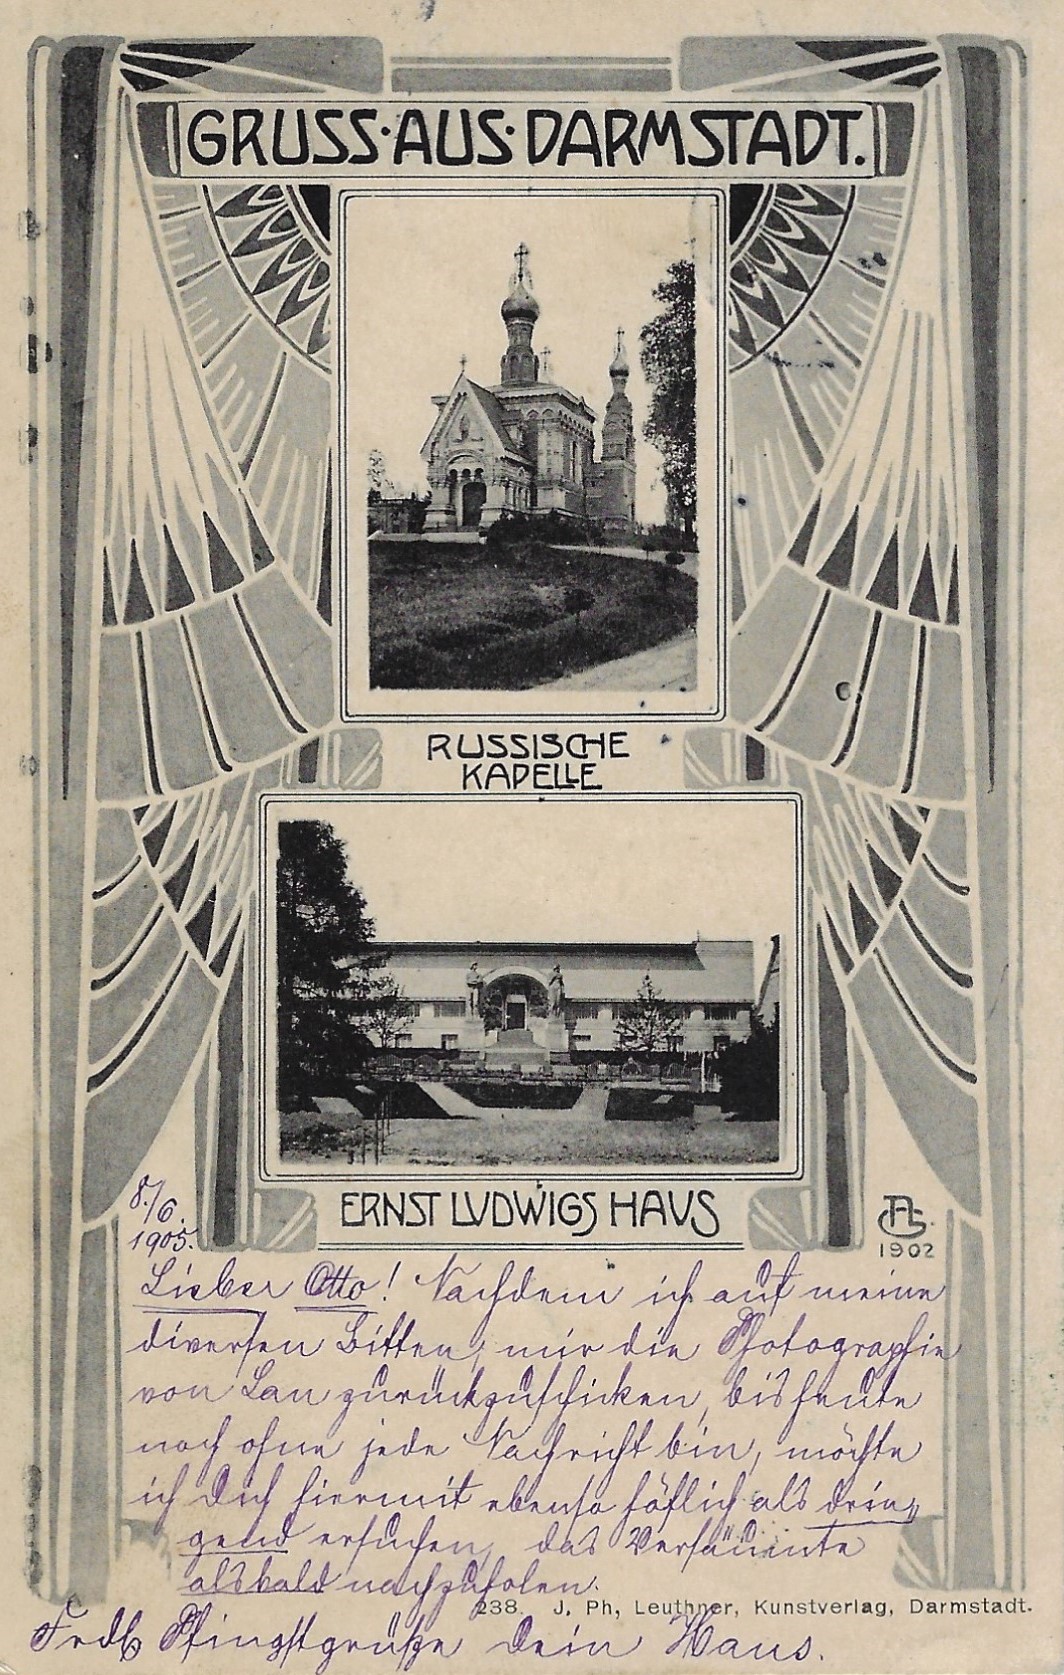 GRUSS·AUS·DARMSTADT.
RUSSISCHE
KAPELLE
ERNST LVDWIGS HAVS
1902
8./6.
1905.
Lieber Otto! Nachdem ich auf meine
diversen Bitten, mir die Photographie
von Lau zurückzuschicken, bis heute
noch ohne jede Nachricht bin, möchte
ich Dich hiermit ebenso höflich als drin-
gend ersuchen, das Versäumte
alsbald nachzuholen.
238. J. Ph, Leuthner, Kunstverlag, Darmstadt.
Frdl. Pfingstgrüße Dein Hans.